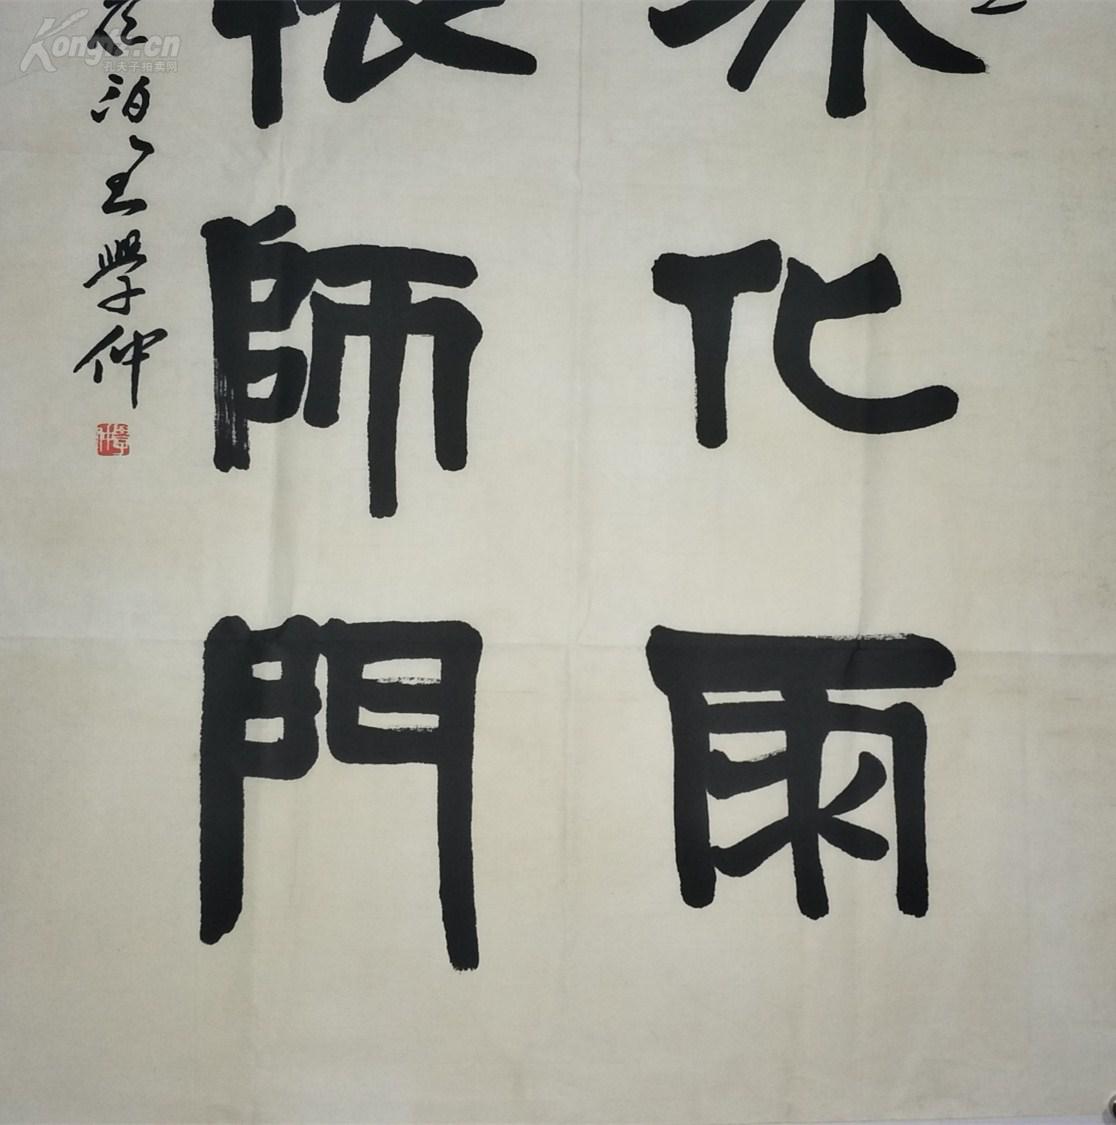 化雨
師門
泊王學仲
Kongfz.cn
孔夫子拍卖网